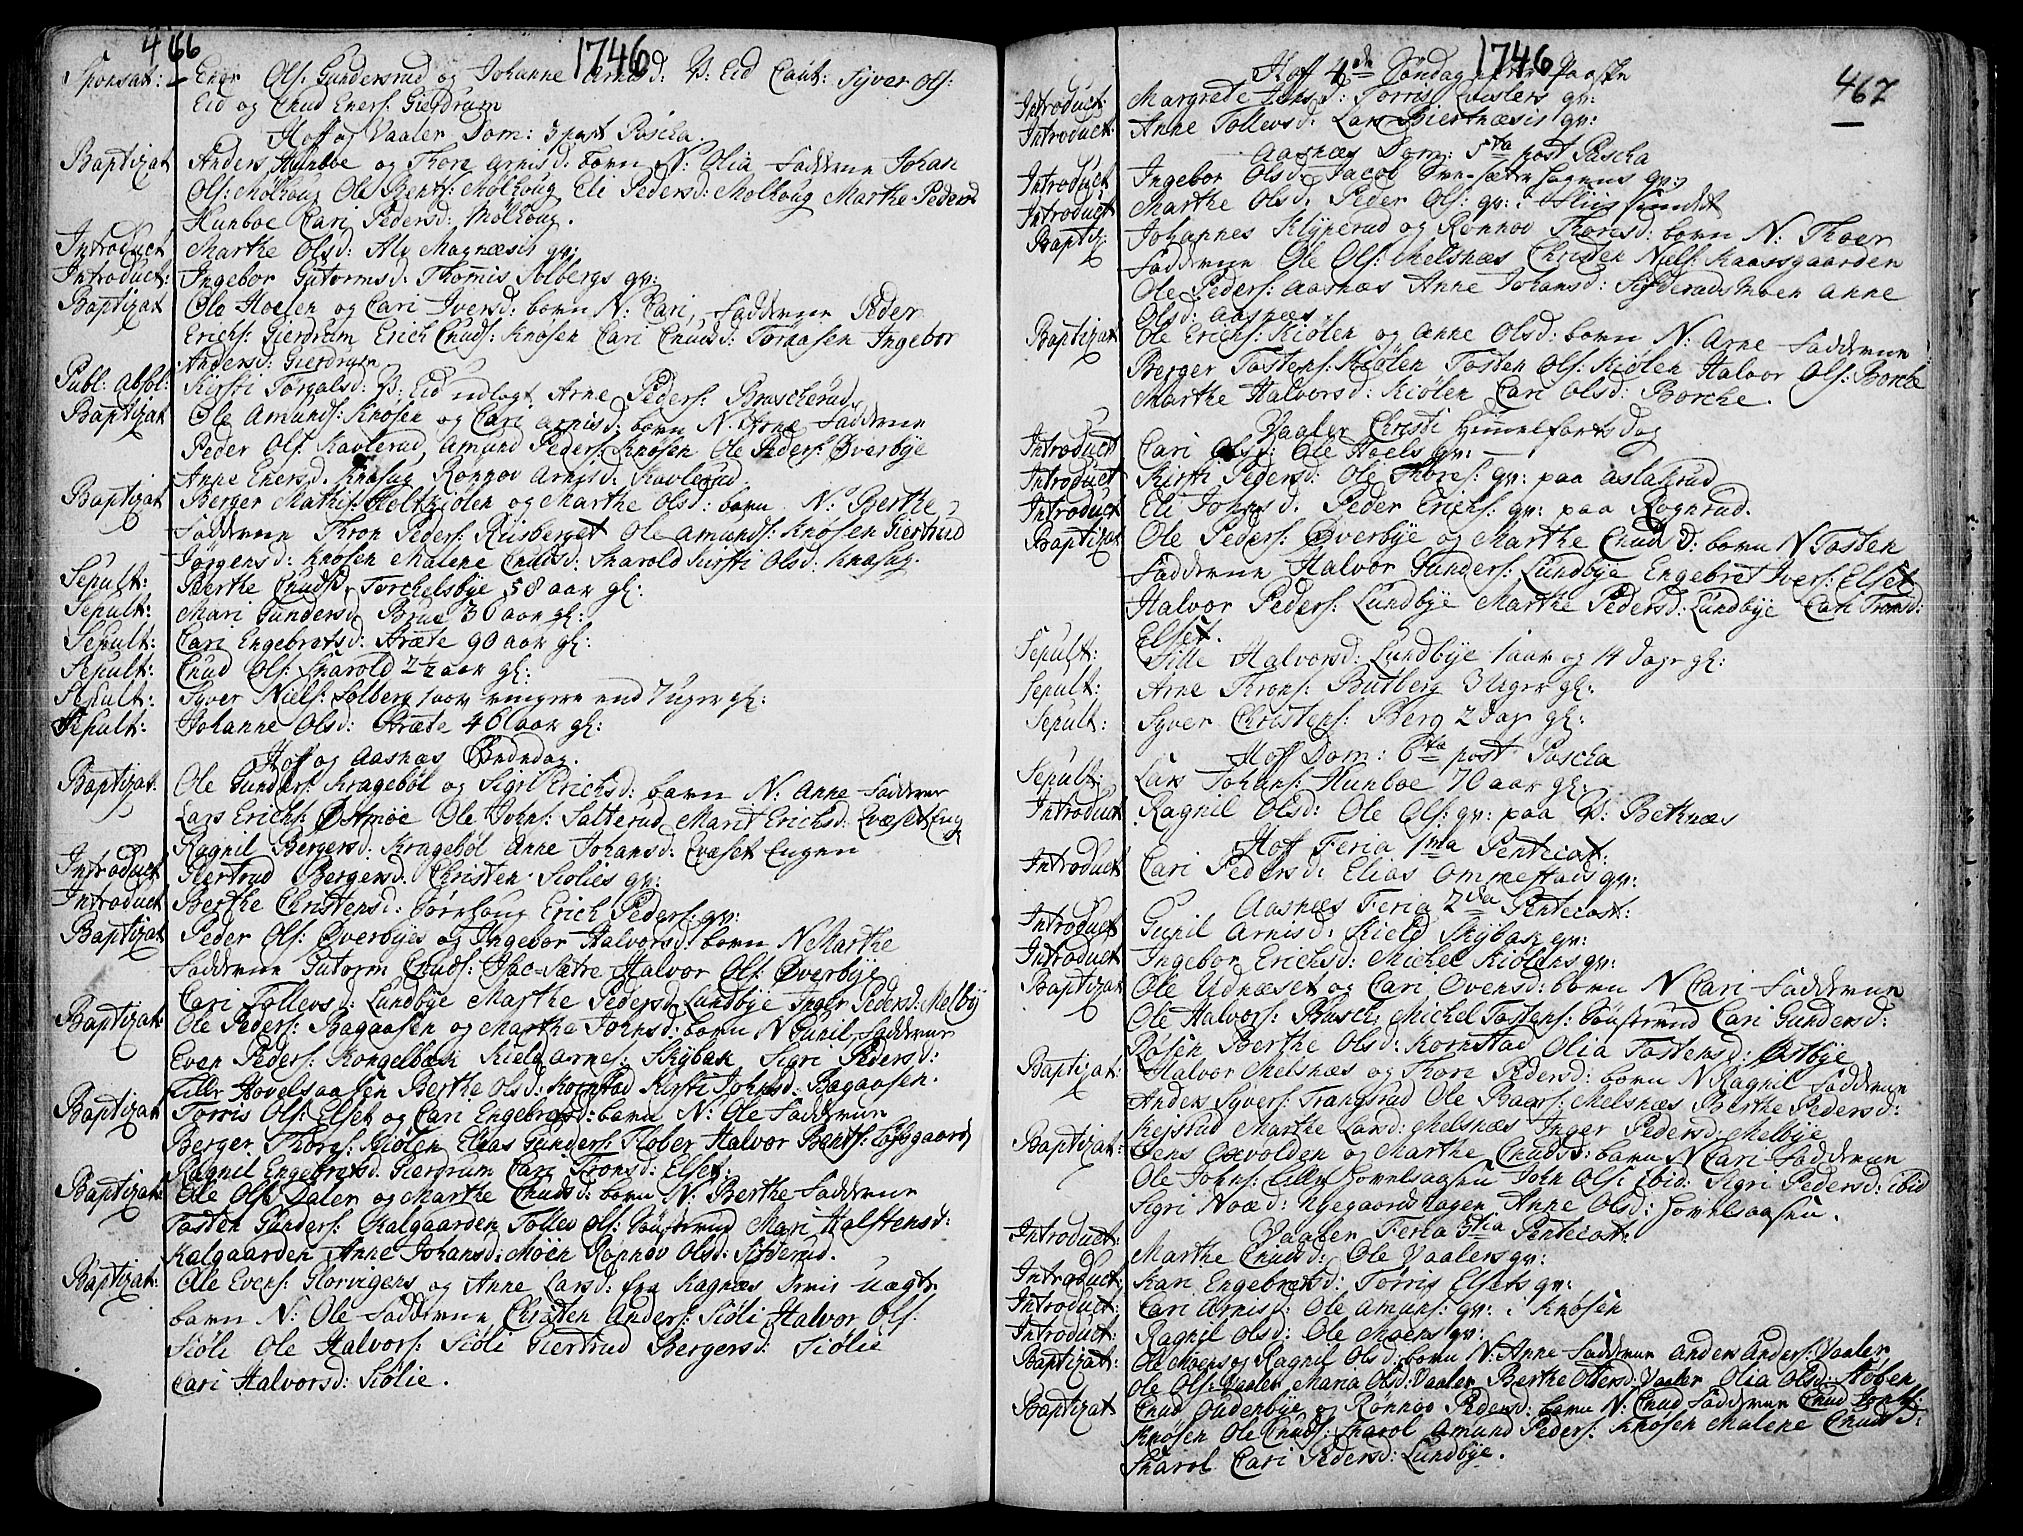 466
1746
Sponsat: Ener Ols: Gundersrud og Johanne Arnisd: V: Eid Caut: Syver Ols:
Eid og Cnud Eners: Gierdrum
Hoff og Vaaler Dom: 3 post Pascha.
Baptizat Anders Hunboe og Thore Arnisd: barn N: Olia Fadderne Johan
Ols: Molkoug Ole Bents: Molkoug Eli Pedersd: Molkoug Marthe Pedersd
Hunboe Cari Pedersd: Molkoug.
Introduct Marthe Olsd: Alv Magnæsis qv:
Introduct: Ingebor Gutormsd: Thomis Solbergs qv:
Baptizat Ole Hoelen og Cari Iversd: barn N: Cari, Fadderne Peder
Erichs: Gierdrum Erich Cnuds: Knosen Cari Cnudsd: Tornaasen Ingebor
Andersd: Gierdrum
Publ: Absol: Kirsti Torgalsd: V: Eid udlagt Arne Peders: Bruscherud
Baptizat Ole Amunds: Knosen og Cari Arnisd: barn N: Arne Fadderne
Peder Ols: Kavlerud, Amund Peders: Knosen Ole Peders: Øverbye
Anne Enersd. Knasug Rønnov Arnisd: Kavlerud
Baptizat Berger Mathis: Holtkiolen og Marthe Olsd: barn N: Berthe
Fadderne Thron Peders: Risberget Ole Amunds: Knosen Giertrud
Jørgensd: Knosen Malene Cnudsd: Skarold Kirsti Olsd: Knasug.
Sepult: Berthe Cnudsd, Torchelsbye 58 aar gl:
Sepult: Mari Gundersd: Brue 36 aar gl:
Sepult: Cari Engebretsd: Stræte 90 aar gl:
Sepult: Cnud Ols: Skarold 2½ aar gl:
Sepult: Syver Niels: Solberg 1 aar ringere end 7 uger gl:
Sepult: Johanne Olsd: Stræte 46 aar gl:
Hoff og Aasnæs Bededag.
Baptizat: Ole Gunders: Kragebøl og Sigri Erichsd: barn N: Anne Fadderne
Lars Erichs: Østmoe Ole Johns: Satterud Marit Erichsd: Qvæset Eng
Ragnil Bergersd: Kragebøl Anne Johansd: Qvæset Engen
Introduct Giertrud Bergersd: Christen Siølies qv:
Introduct Berthe Christensd: Erich Peders: qv:
Baptizat Peder Ols: Øverbyes og Ingebor Halvorsd: barn N: Marthe
Fadderne Gutorm Cnuds: Hac-Sætre Halvor Ols: Øverbye
Cari Tollevsd: Lundbye Marthe Pedersd Lundbye Inger Pedersd: Melby
Baptizat Ole Peders: Bagaasen og Marthe Johnsd: barn N Gunil Fadderne
Even Peders: Kongelbæk Kield Arnes: Skybak Sigri Pedersd:
Lille Hovelsaasen Berthe Olsd: Kornstad Kirsti Johnsd: Bagaasen.
Baptizat Torris Ols: Elset og Cari Engebretsd: barn N: Ole Fadderne
Berger Thores: Kiolen Elias Gunders: Flober Halvor Bents: Løfsgaard
Ragnil Engebretsd: Gierdrum Cari Tronsd: Elset:
Baptizat: Ole Ols: Daler og Marthe Cnudsd: barn N: Berthe Fadderne
Tosten Gunders: Kalgaarden Tollev Ols: Mari Halstensd:
Kalgaarden Anne Johansd: Moen Rønnov Olsd: Siøderud.
Baptizat: Ole Evens: Glorvigens og Anne Larsd: fra Kagnæs deris uægte
barn N: Ole Fadderne Christen Anders: Siøli Halvor Ols:
Siøli Ole Halvors: Siøli Giertrud Bergersd: Siølie
Cari Halvorsd: Siølie.
1746
467
Hoff 4de Søndag efter Paaske
Introduct Margrete Jensd: Torris Qvislers qv:
Introduct: Anne Tollevsd: Lars Biertnæsis qv:
Aasnæs Dom: 5ta post Pascha
Introduct Ingebor Olsd: Jacob Svensætre Hagens qv:
Introduct Marthe Olsd: Peder Ols: qv: i Sundet
Baptiz: Johannes Klyperud og Rønnov Thorisd: barn N: Thoer
Fadderne Ole Ols: Melsnæs Christen Niels: Kaassgaarden
Ole Peders: Aasnæs Anne Johansd: Siøderudsmoen Anne
Olsd: Aasnæs.
Baptizat Ole Erichs: Kiølen og Anne Olsd: barn N: Arne Fadderne
Berger Tostens: Kiølen Tosten Ols: Kiølen Halvor Ols: Borche
Marthe Halvorsd: Kiølen Cari Olsd: Borche.
Vaaler Christi Himmelfartsdag
Introduct Cari Olsd: Ole Hoels qv:
Introduct Kirsti Pedersd: Ole Thores: qv: paa Aslakrud
Introduct Eli Johnsd: Peder Erichs: qv: paa Rognrud.
Baptizat Ole Peders: Øverbye og Marthe Cnudsd: barn N Tosten
Fadderne Halvor Gunders: Lundbye Engebret Ivers: Elset
Halvor Peders: Lundbye Marthe Pedersd: Lundbye Cari Tronsd:
Elset.
Sepult: Sille Halvorsd: Lundbye 1 aar og 14 dage gl:
Sepult: Arne Throns: Butberg 3 Uger gl:
Sepult: Syver Christens: Berg 2 dage gl:
Hoff Dom: 6ta post Pascha
Sepult: Lars Johans: Hunboe 70 aar gl:
Introduct Ragnil Olsd: Ole Ols: qv: paa V: Beknæs
Hoff Feria 1ma Pentecost:
Introduct Cari Pedersd: Elias Ommestads qv:
Aasnæs Feria 2da Pentecost:
Introduct Gunil Arnisd: Kield Skybak qv:
Introduct: Ingebor Erichsd: Michel Kiølens qv:
Baptizat Ole Udnæset og Cari Ovensd: barn N Cari Fadderne
Ole Halvors: Busch, Michel Tostens: Cari Gundersd:
Røsen Berthe Olsd: Kornstad Olia Tostensd: Østbye
Baptizat: Halvor Melsnæs og Thore Pedersd: barn N Ragnil Fadderne
Anders Syvers: Trangsrud Ole Baars: Melsnæs Berthe Pedersd:
Kejstad Marthe Larsd: Melsnæs Inger Pedersd: Melbye
Baptizat: Jens Oxvolden og Marthe Cnudsd: barn N Cari Fadderne
Ole Johns: Lille Hovelsaasen John Ols: ibid: Sigri Pedersd: ibid
Sigri Noæd: Nyegaardshagen Anne Olsd: Hovelsaasen.
Vaaler Feria 3tia Pentecost:
Introduct: Marthe Cnudsd: Ole Vaalers qv:
Introduct: Kari Engebretsd: Torris Elsets qv:
Introduct: Cari Arnisd: Ole Amuns: qv: i Knosen
Introduct: Ragnil Olsd: Ole Moens qv:
Baptizat: Ole Moens og Ragnil Olsd: barn N: Anne Fadderne Anders Anders: Vaaler
Ole Ols: Vaaler Maria Olsd: Vaaler Berthe Olsd: Vaaler Olia Olsd: Høben
Baptizat Cnud Oudenbye og Rønnov Pedersd: barn N: Cnud Fadderne Cnud
Knosen Ole Cnuds: Skarol Amund Peders: Knosen Malene Cnudsd:
Skarol Cari Pedersd: Lundbye.